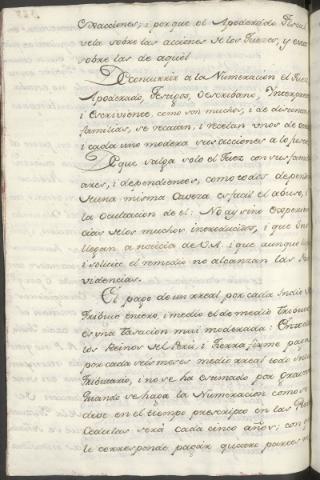 Exacciones; i porque el Apoderado Fiscal
vela sobre las acciones de los Juezes, y estos
sobre las de aquel
De concurrir a la Numeracion el Juez
Apoderado, Testigos, Escribano, Interprete
i Escriviente, como son muchos, i de distintas
familias, se recatan, i recelan unos de otros
i cada uno modera sus acciones a lo justo
De que salga solo el Juez con sus familiares
ares, i dependientes, como todos dependen
de una misma Caveza es facil el abuso, i
la Ocultacion de el: No ay sino
dias de los muchos incombenientes, i que
llegan a noticia de V.A. i que aunque
i solicite el remedio no alcanzan las Pro
videncias.
El pago de un rreal por cada Indio de
Tributo entero, i medio el de medio Tributo
es una tasacion mui moderada: En todos
los Reinos del Perù, i Tierra firme pagan
por cada seis meses medio rreal todo Indio
Tributario, i no se ha estimado por gravoso
Quando se haga la Numeracion como se
debe en el tiempo prescripto en las Reales
Cedulas será cada cinco años; con que
le corresponde pagar quatro